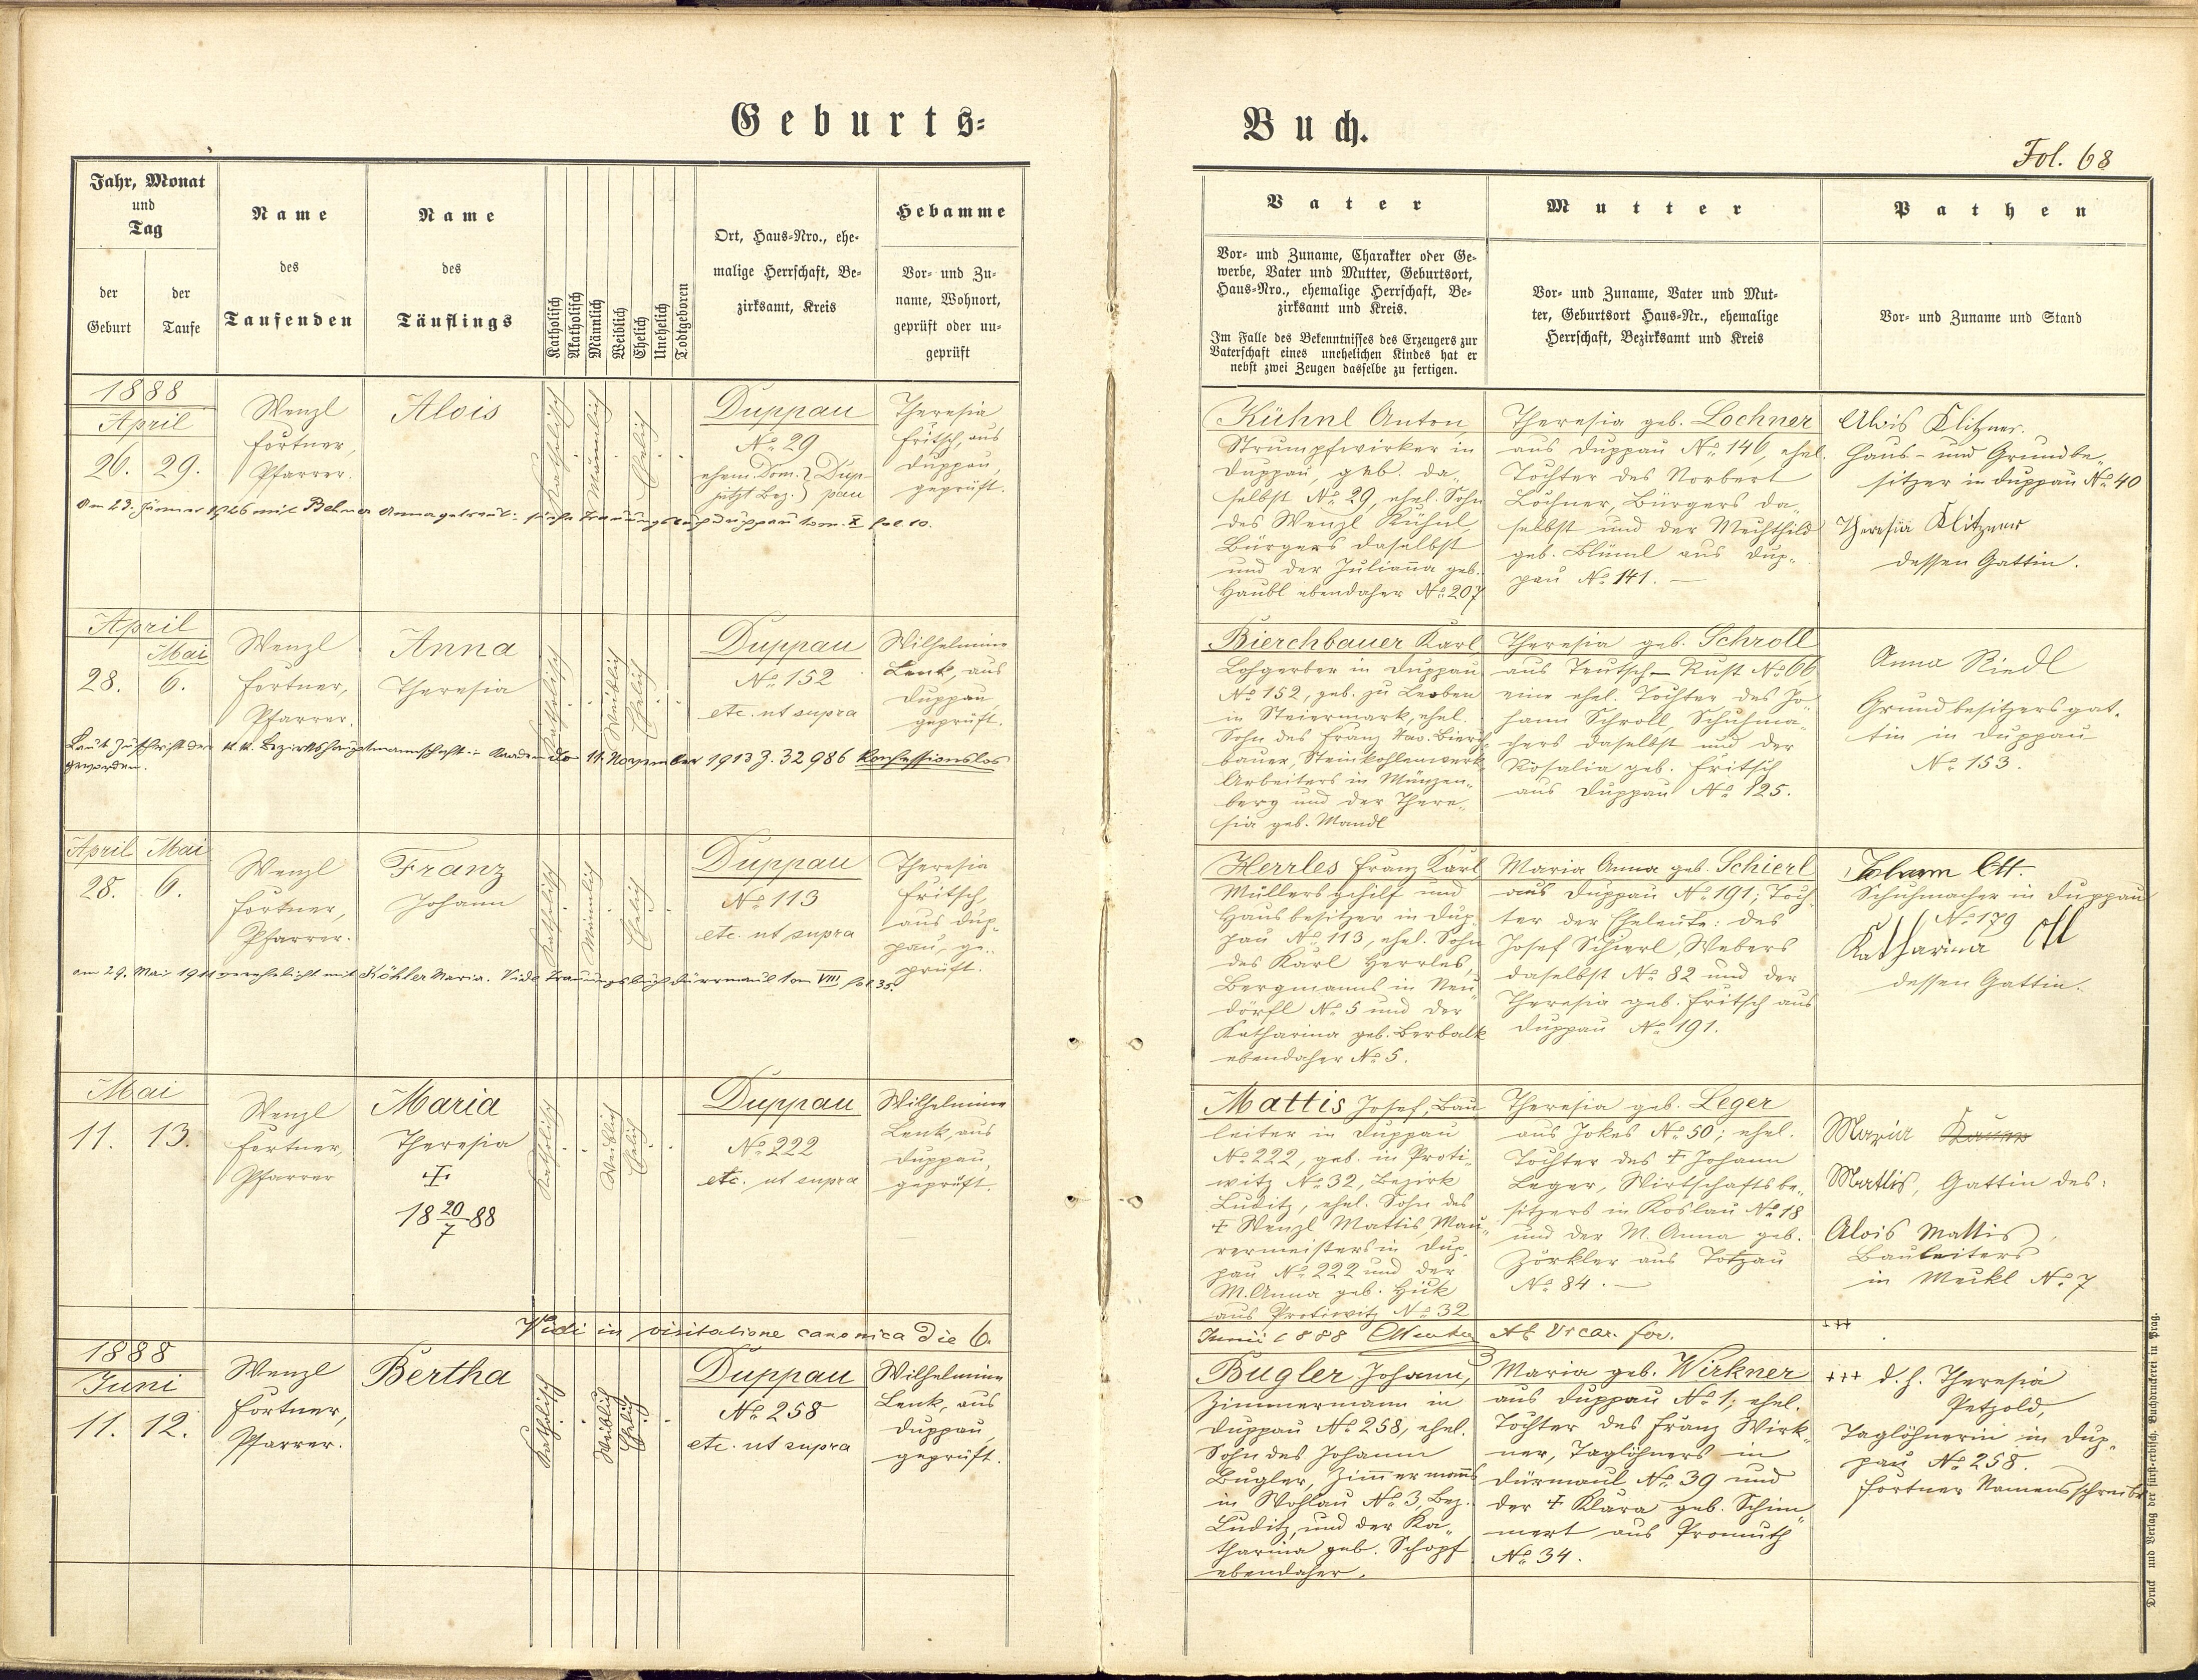 Geburts=
Buch.
Fol. 68
Jahr, Monat
und
Tag
der
Geburt
der
Taufe
Name
des
Taufenden
Name
des
Täuflings
Katholisch
Akatholisch
Männlich
Weiblich
Ehelich
Unehelich
Todtgeboren
Ort, Haus=Nro., ehe=
malige Herrschaft, Be=
zirksamt, Kreis
Hebamme
Vor= und Zu=
name, Wohnort,
geprüft oder un=
geprüft
Vater
Vor= und Zuname, Charakter oder Ge=
werbe, Vater und Mutter, Geburtsort,
Haus=Nro., ehemalige Herrschaft, Be=
zirksamt und Kreis.
Im Falle des Bekenntnisses des Erzeugers zur
Vaterschaft eines unehelichen Kindes hat er
nebst zwei Zeugen dasselbe zu fertigen.
Mutter
Vor= und Zuname, Vater und Mut=
ter, Geburtsort Haus=Nr., ehemalige
Herrschaft, Bezirksamt und Kreis
Pathen
Vor= und Zuname und Stand
1888
April
26. 29.
Wenzl
Fortner,
Pfarrer.
Alois
Katholisch
Männlich
Ehelich
Duppau
No. 29
ehem. Dom. } Dup-
jetzt Bez. } pau
Theresia
Fritsch, aus
Duppau,
geprüft.
Am 23. Jänner 1926 mit Anna getraut: siehe Trauungsbuch Duppau tom. X fol. 10.
Kühnl Anton
Strumpfwirker in
Duppau, geb. da-
selbst No. 29, ehel. Sohn
des Wenzl Kühnl,
Bürgers daselbst
und der Julianna geb.
Haubl ebendaher No. 207
Theresia geb. Lochner
aus Duppau No. 146, ehel.
Tochter des Norbert
Lochner, Bürgers da-
selbst und der Mechthild
geb. Blüml aus Dup-
pau No. 141. —
Alois Klitzner.
Haus- und Grundbe-
sitzer in Duppau No. 40
Theresia Klitzner
dessen Gattin.
April
Mai
28. 6.
Wenzl
Fortner,
Pfarrer.
Anna
Theresia
Katholisch
Weiblich
Ehelich
Duppau
No. 152
etc. ut supra
Wilhelmine
Lenk, aus
Duppau,
geprüft.
Laut Zuschrift der k. k. Bezirkshauptmannschaft in Kaaden do 11. November 1913 Z. 32986 konfessionslos
geworden.
Bierchbauer Karl,
Lohgerber in Duppau
No. 152, geb. zu Leoben
in Steiermark, ehel.
Sohn des Franz Xav. Bierch-
bauer, Steinkohlenwerk-
Arbeiters in Münzen-
berg und der There-
sia geb. Mandl
Theresia geb. Schroll
aus Teutsch-Rust No. 66
eine ehel. Tochter des Jo-
hann Schroll, Schuhma-
chers daselbst und der
Rosalia geb. Fritsch
aus Duppau No. 125.
Anna Riedl
Grundbesitzersgat-
tin in Duppau
No. 153.
April Mai
28. 6.
Wenzl
Fortner,
Pfarrer.
Franz
Johann
Katholisch
Männlich
Ehelich
Duppau
No. 113
etc. ut supra
Theresia
Fritsch,
aus Dup-
pau, ge-
prüft.
am 29. Mai 1911 verehelicht mit Köhler Maria. Vide Trauungsbuch Dürrmaul Tom VIII fol. 35.
Herrles Franz Karl
Müllersgehilf und
Hausbesitzer in Dup-
pau No. 113, ehel. Sohn
des Karl Herrles,
Bergmanns in Neu-
dörfl No. 5 und der
Katharina geb. Berbalk
ebendaher No. 5.
Maria Anna geb. Schierl
aus Duppau No. 191; Toch-
ter der Eheleute: des
Josef Schierl, Webers
daselbst No. 82 und der
Theresia geb. Fritsch aus
Duppau No. 191.
Johann Ott.
Schuhmacher in Duppau
No. 179
Katharina Ott
dessen Gattin.
Mai
11. 13.
Wenzl
Fortner,
Pfarrer
Maria
Theresia
†
18 20/7 88
Katholisch
Weiblich
Ehelich
Duppau
No. 222
etc. ut supra
Wilhelmine
Lenk, aus
Duppau,
geprüft.
Mattis Josef, Bau-
leiter in Duppau
No. 222, geb. in Proti-
witz No. 32, Bezirk
Luditz, ehel. Sohn des
† Wenzl Mattis, Mau-
rermeisters in Dup-
pau No. 222 und der
M. Anna geb. Huk
aus Protiwitz No. 32
Theresia geb. Leger
aus Jokes No. 50; ehel.
Tochter des † Johann
Leger, Wirtschaftsbe-
sitzers in Koslau No. 18
und der M. Anna geb.
Zörkler aus Totzau
No. 84. —
Maria
Mattis, Gattin des:
Alois Mattis,
Bauleiters
in Meikl No. 7
Vidi in visitatione canonica die 6.
Junii 1888 Vicar. for.
+++
1888
Juni
11. 12.
Wenzl
Fortner,
Pfarrer.
Bertha
Katholisch
Weiblich
Ehelich
Duppau
No. 258
etc. ut supra
Wilhelmine
Lenk, aus
Duppau,
geprüft.
Bugler Johann,
Zimmermann in
Duppau No. 258, ehel.
Sohn des Johann
Bugler, Zimmermanns
in Wohlau No. 3, Bez.
Luditz, und der Ka-
tharina geb. Schopf
ebendaher.
Maria geb. Wirkner
aus Duppau No. 1; ehel.
Tochter des Franz Wirk-
ner, Taglöhners in
Dürmaul No. 39 und
der † Klara geb. Schim-
mert aus Promuth
No. 34.
+++ d. h. Theresia
Petzold,
Taglöhnerin in Dup-
pau No. 258.
Fortner Namensschreiber
Druck und Verlag der fürst=erbisch. Buchdruckerei in Prag.